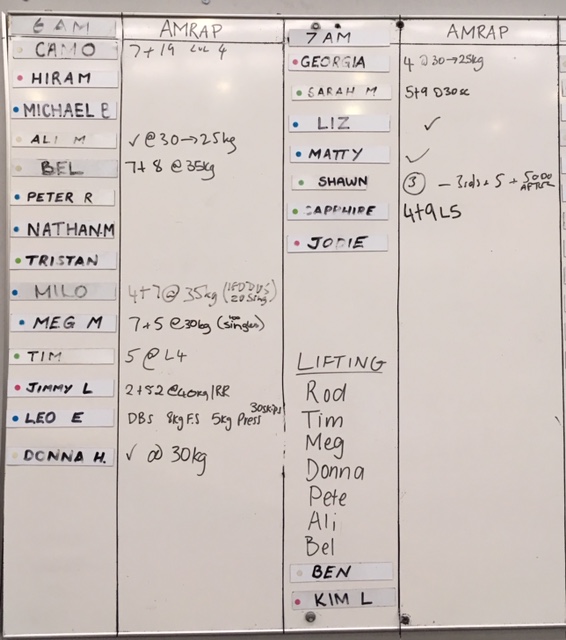 6 AM AMRAP
CAMO 7+19 LVL 4
HIRAM
MICHAEL B
ALI M ✓ @ 30→25kg
BEL 7+8 @ 35kg
PETER R
NATHAN.M
TRISTAN
MILO 4+7 @ 35kg
MEG M 7+5 @ 30kg (singles)
TIM 5 @ L4
JIMMY L 2+52 @ 40kg/RR
LEO E DBs 8kg F.S 5kg Press 30skips
DONNA H. ✓ @ 30kg
7 AM AMRAP
GEORGIA 4 @ 30→25kg
SARAH M 5+9
LIZ ✓
MATTY ✓
SHAWN ③ - 3rds + 5 + AFTER
SAPPHIRE 4+9 L5
JODIE
LIFTING
Rod
Tim
Meg
Donna
Pete
Ali
Bel
BEN
KIM L